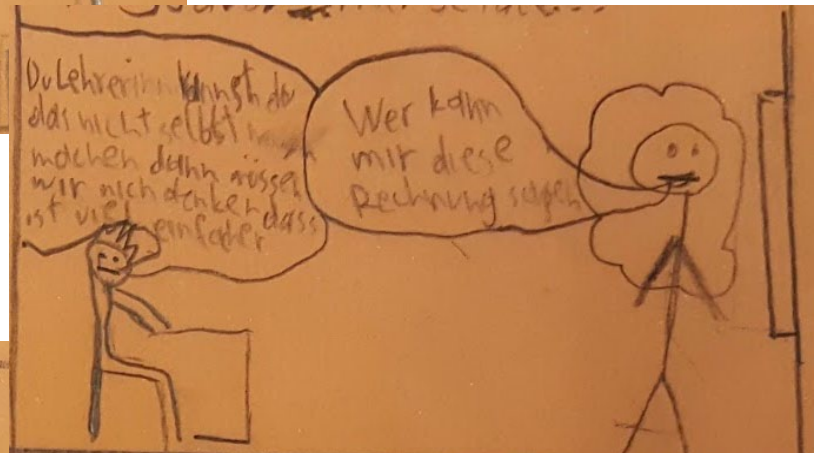 Du Lehrerinn kannst du
das nicht selbst
machen dann müssen
wir nich denken dass
ist viel einfacher
Wer kann
mir diese
Rechnung sagen